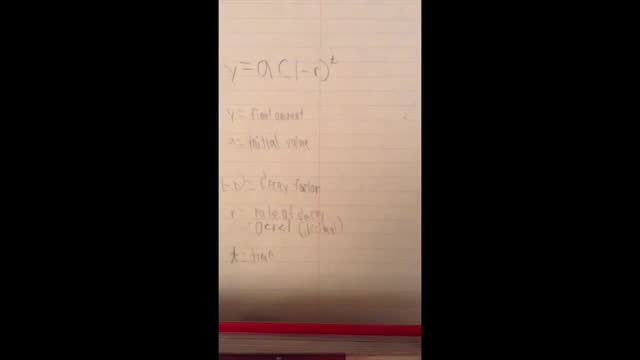 y = a(1-r)^t
y = final amount
a = initial value
1-r) = decay factor
r = rate of decay
0<r<1 (decimal)
t = time